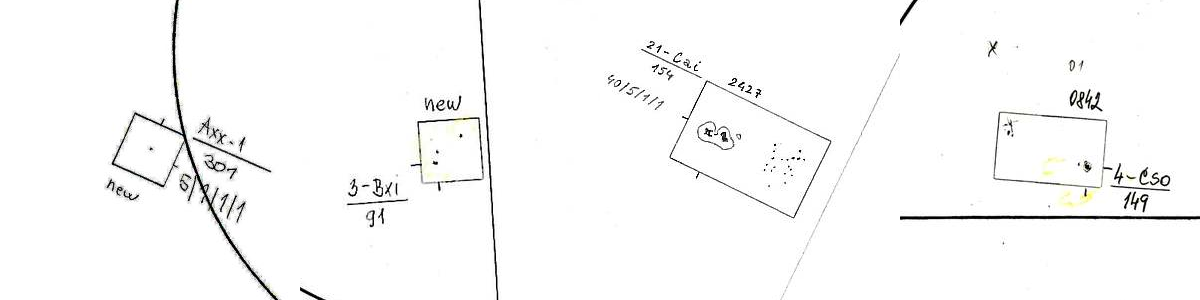 Axx-1
301
5/1/1/1
new
new
3-Bxi
91
21-Cai
154
40/5/1/1
2427
x
01
0842
4-Cso
149